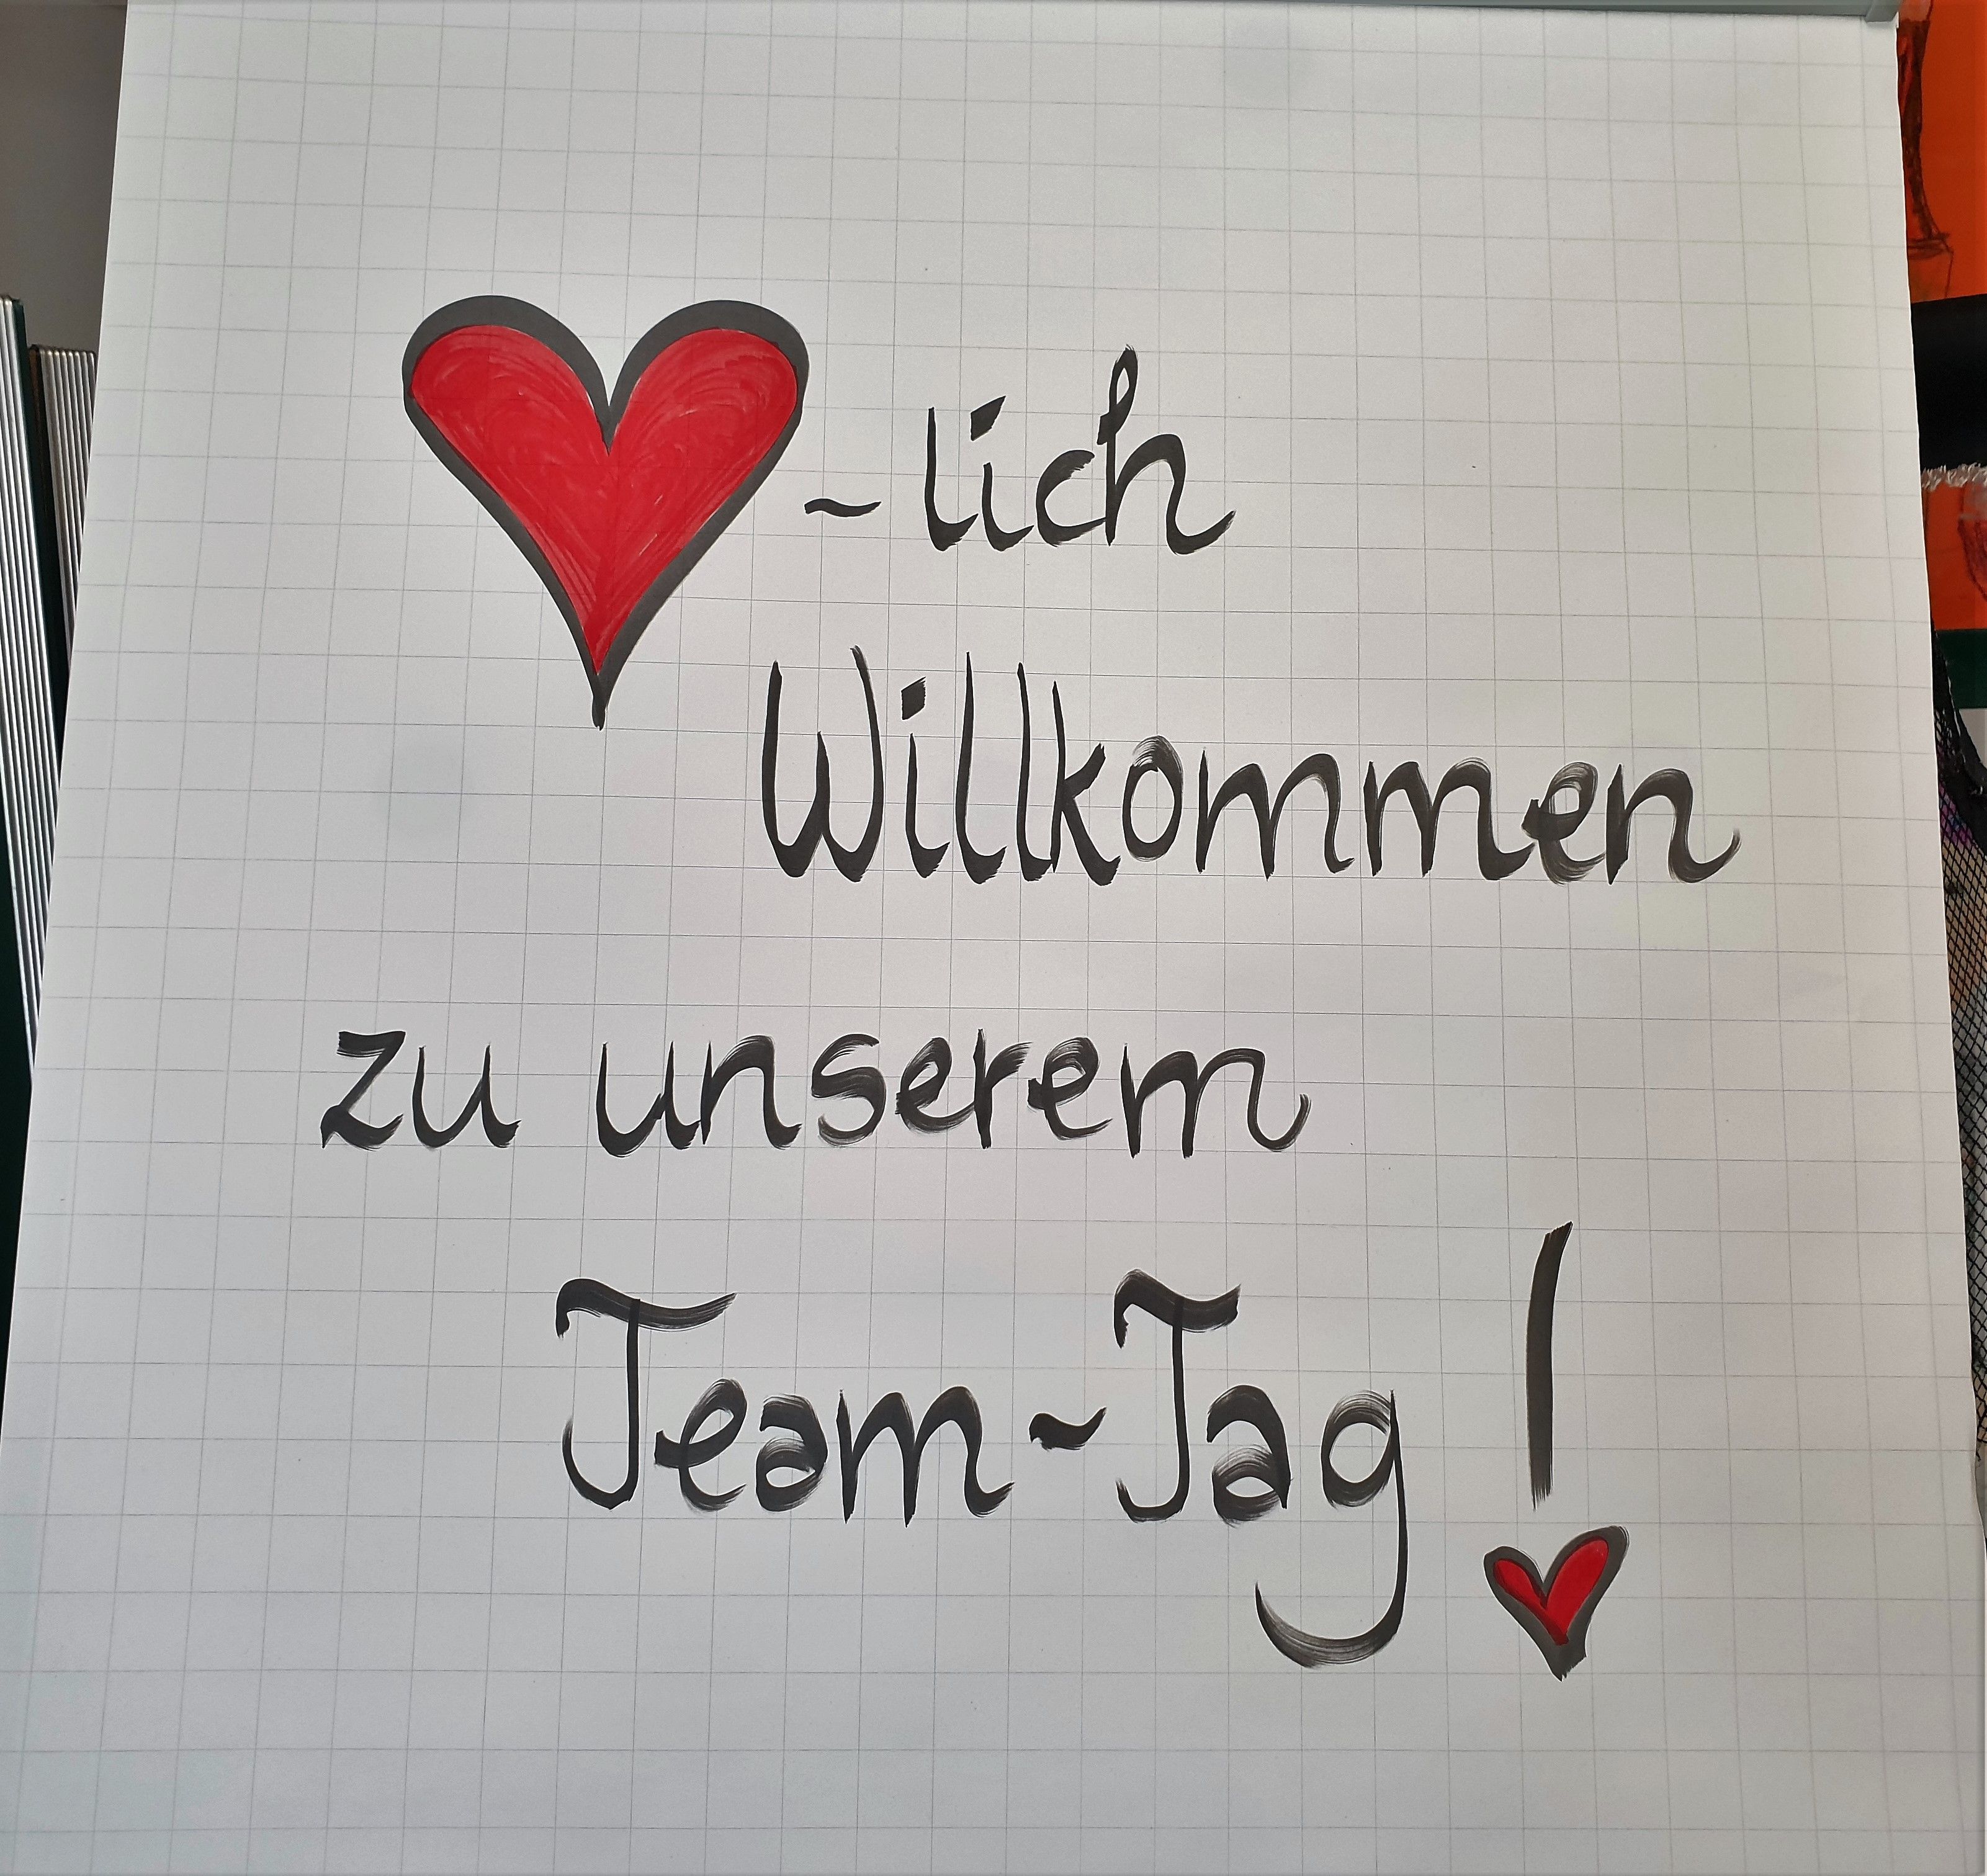 ❤~lich
Willkommen
zu unserem
Team-Tag!